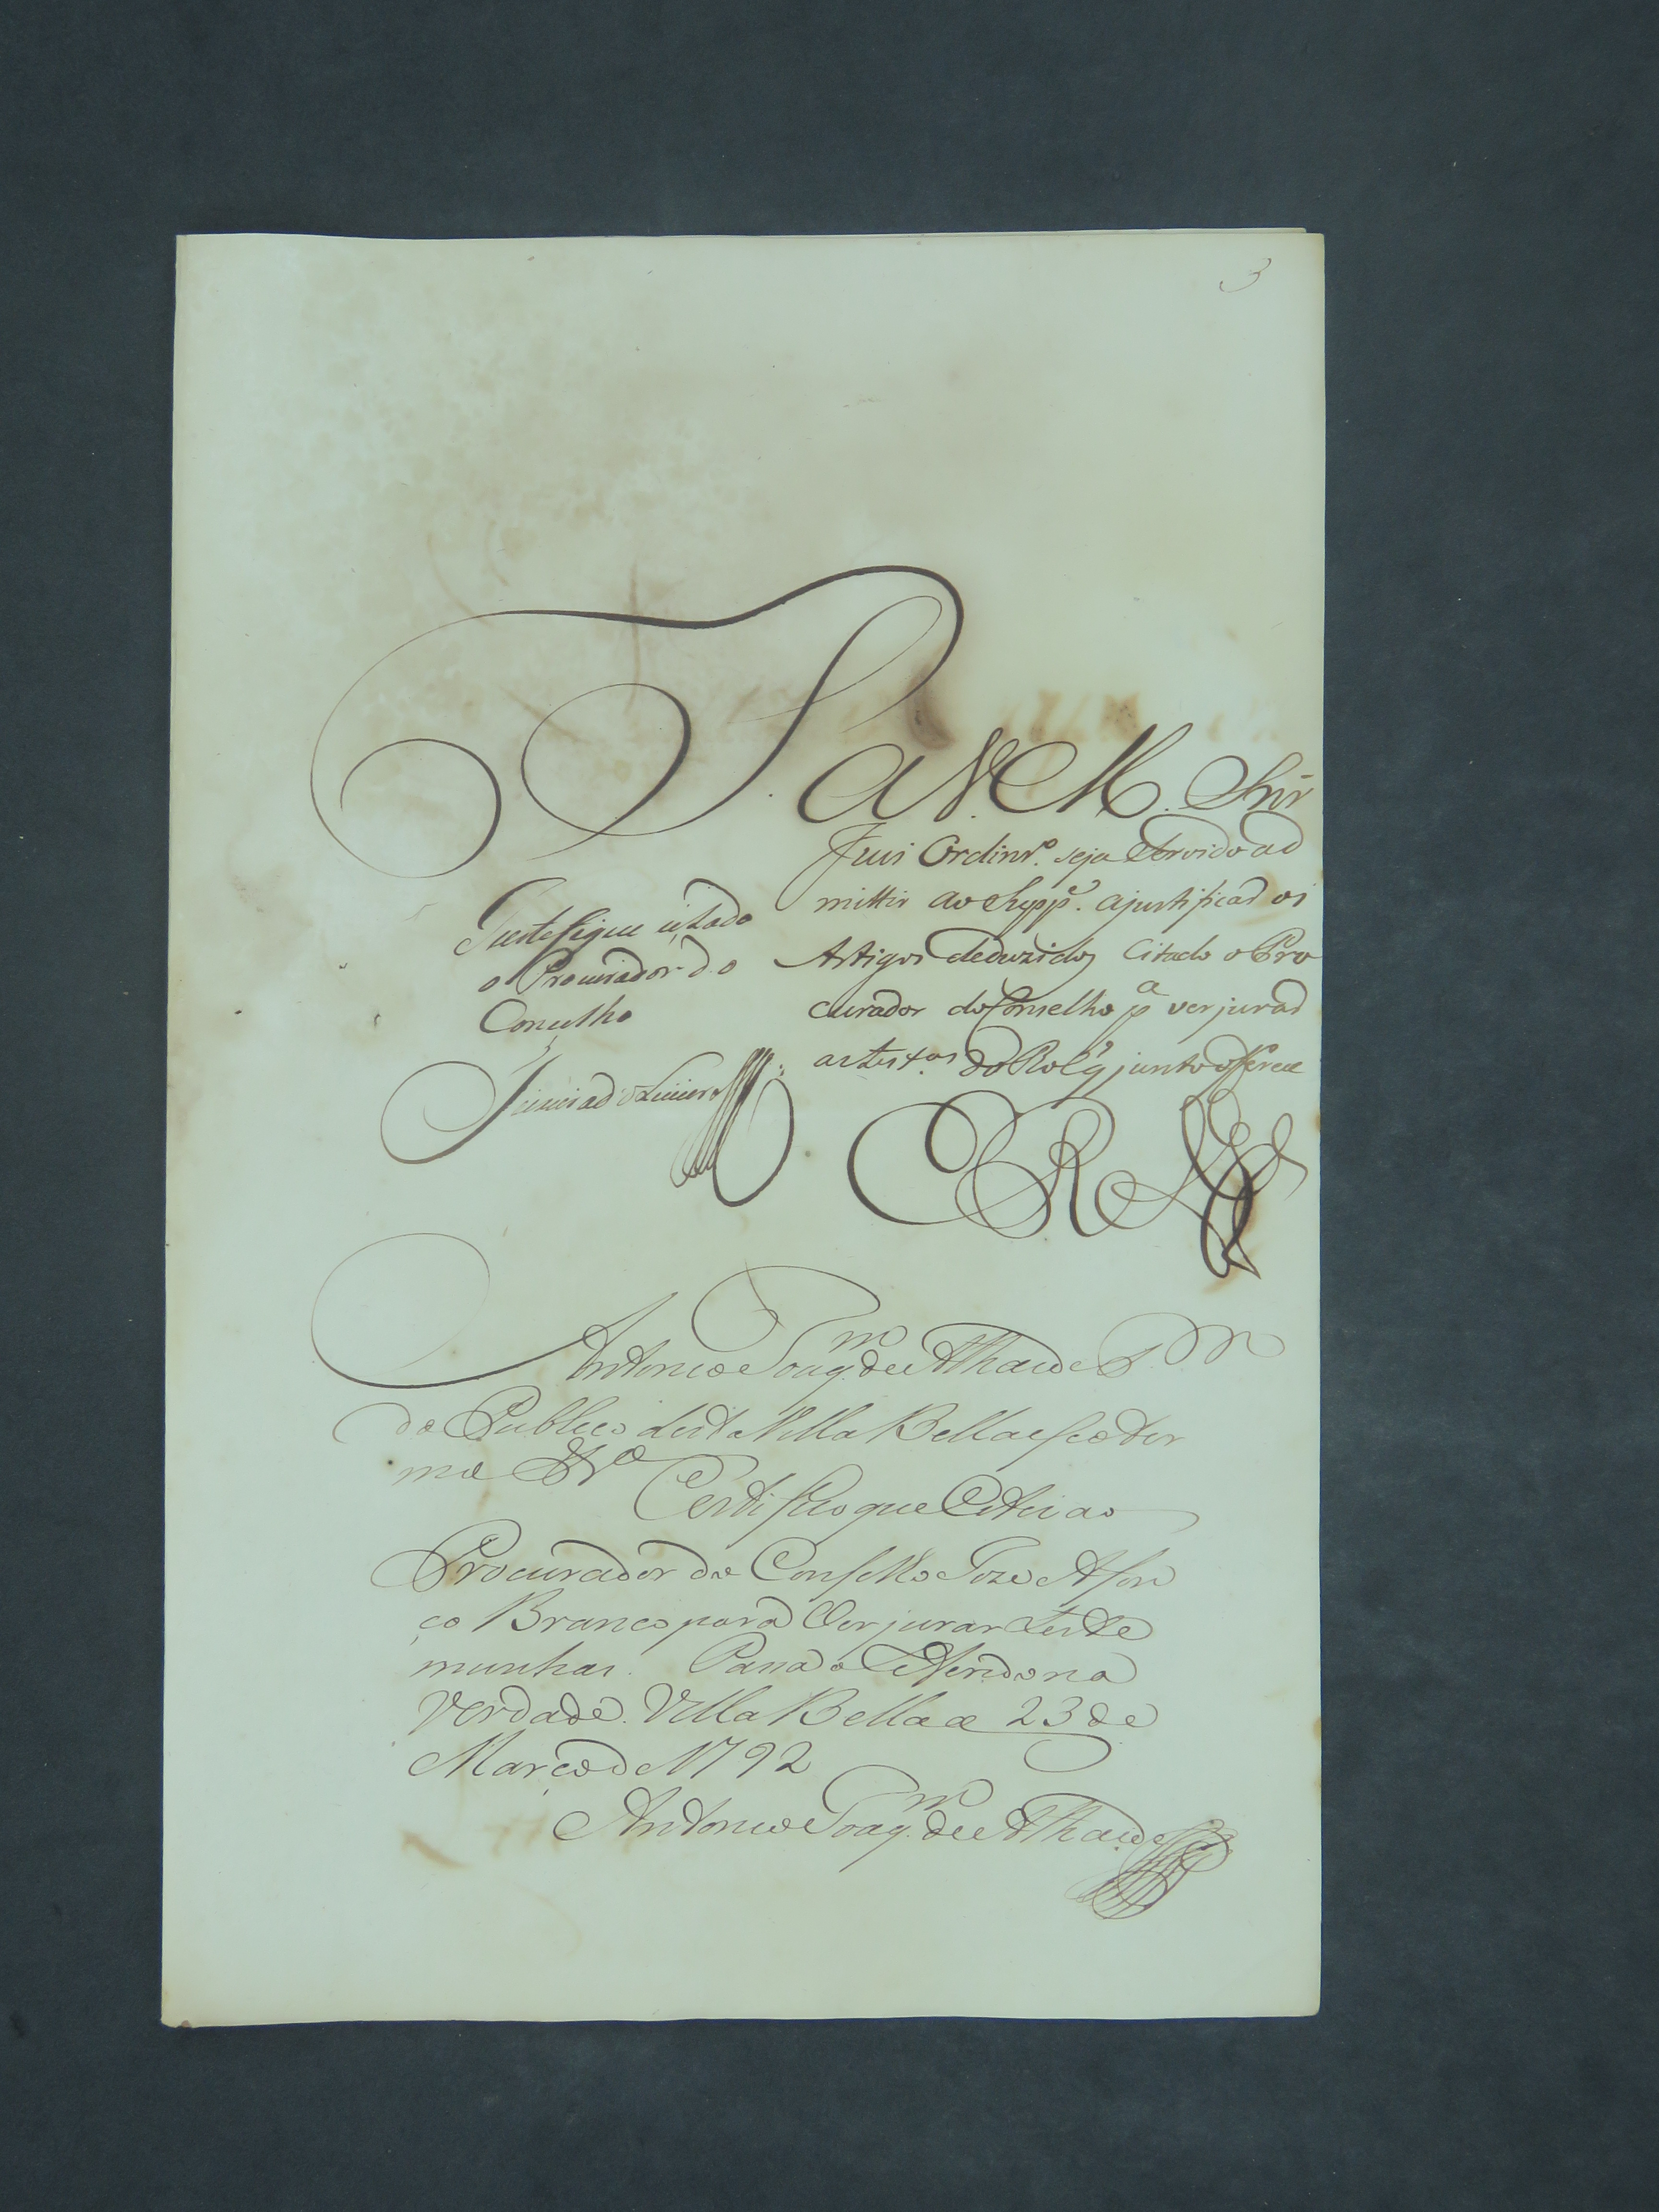 3
P. a V. M. Snr̃
Juis Ordinrº. seja Servido ad
mittir ao Suppe. ajustificar os
Artigos deduzidos Citado o Pro
curador do Conselho pª ver jurar
as testas do Rol q̃ junto offerece
E R Mce
Justefique citado
o Procurador do
Concelho
Antonio Joaqm. de Athaide
do Publico desta Villa Bella e seo Ter
mo &ª
Certifico que Citei ao
Procurador do Conselho Joze Afon
ço Branco para Ver jurar teste
munhas. Passa o referido na
Verdade. Villa Bella a 23 de
Março de 1792
Antonio Joaqm. de Athaide